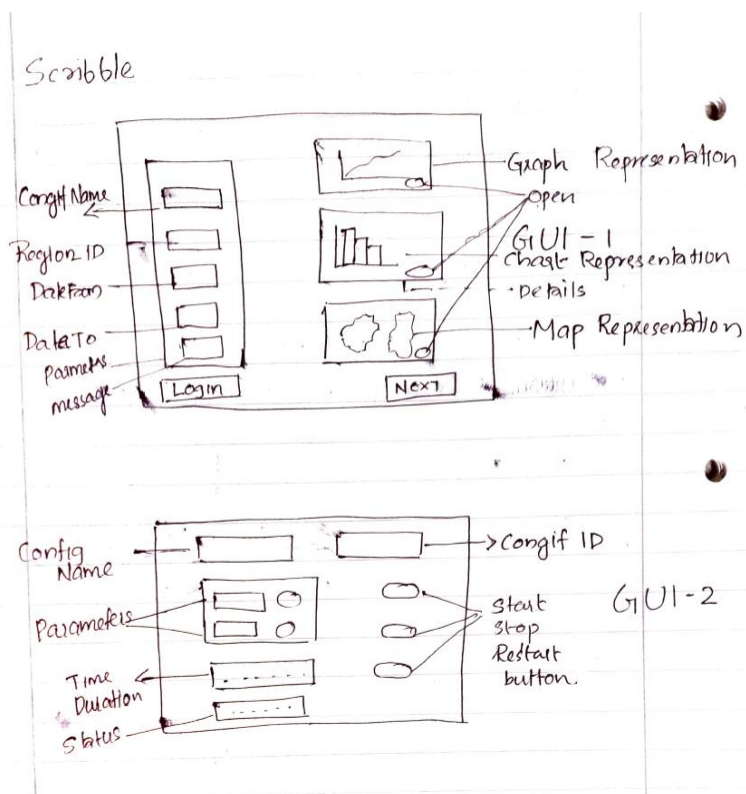 Scribble
Congif Name
Region ID
Date From
Data To
Parmets
message
Login
Next
Graph Representation
Open
GUI-1
Chart Representation
Details
Map Representation
Config
Name
Congif ID
Parameters
Time
Duration
Status
Start
Stop
Restart
button.
GUI-2